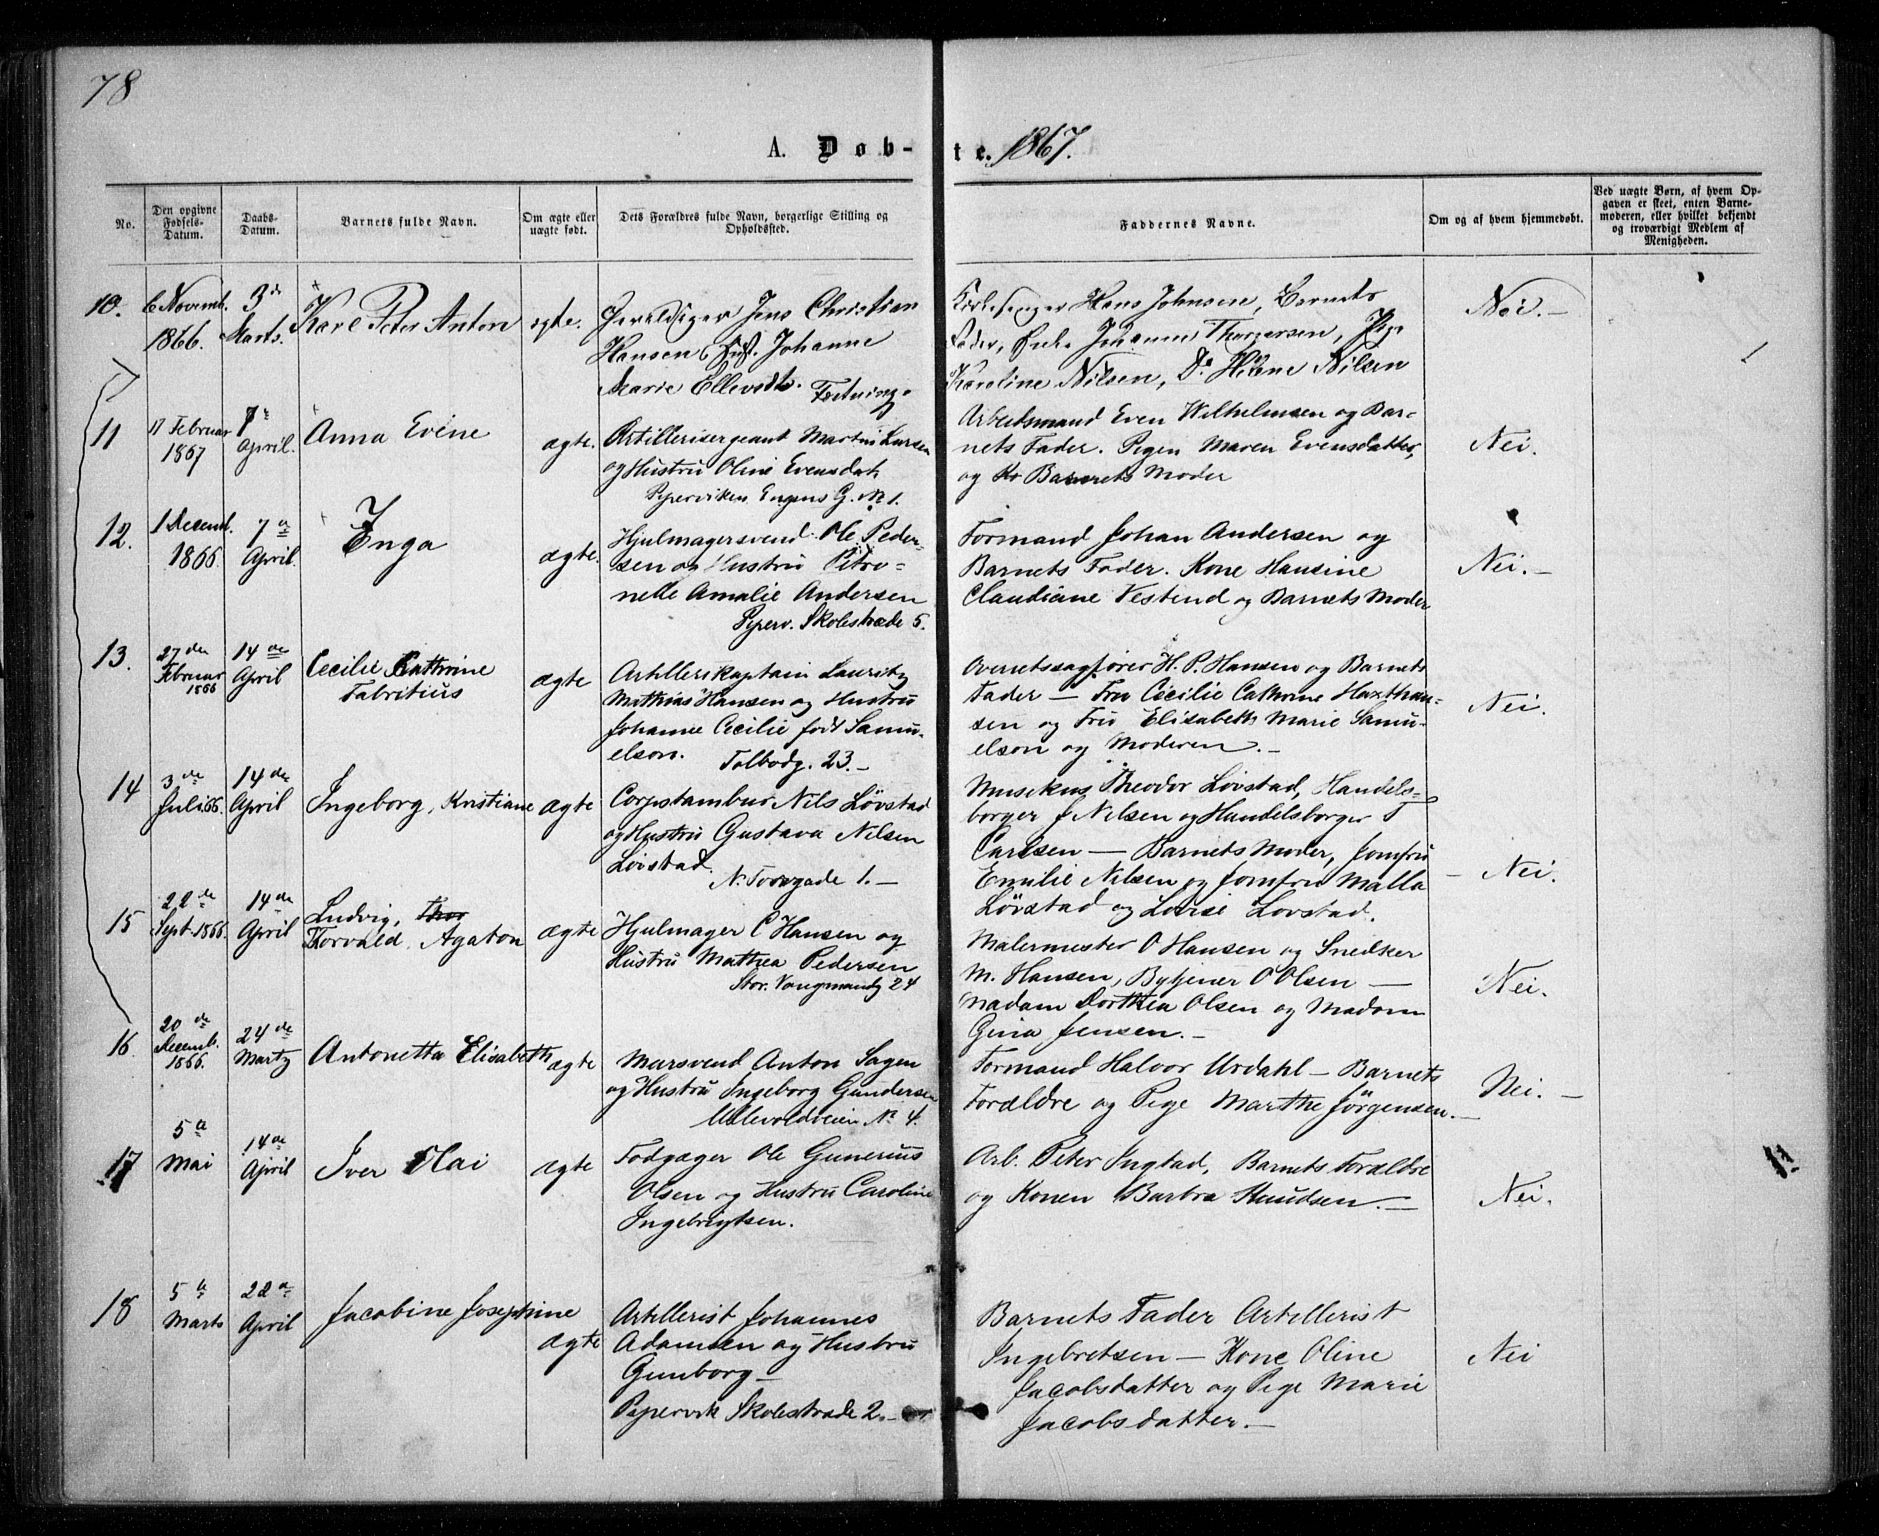 78
A. Døb- te. 1867.
No.
Den opgivne Fødsels-Datum.
Daabs-Datum.
Barnets fulde Navn.
Om ægte eller uægte født.
Dets Forældres fulde Navn, borgerlige Stilling og Opholdssted.
Faddernes Navne.
Om og af hvem hjemmedøbt.
Ved uægte Børn, af hvem Opgaven er skeet, enten Barnemoderen, eller hvilket bekjendt og troværdigt Medlem af Menigheden.
10. 6 Novemb. 1866. 3de Marts. Karl Peter Anton ægte.
Jens Christian
Hansen Hust. Johanne
Marie Ellevsdtr. Fetning.
Kirkesanger Hans Johnsen, Barnets
Fader, Enke Johanne Thorgersen, Pige
Karoline Nilsen, Do Helene Nilsen
Nei.—
11 17 Februar 1867 7de April. Anna Evine ægte.
Artillerisergeant Martin Larsen
og Hustru Oline Evensdatt
Piperviken Engens G. No 1.
Arbeidsmand Even Wilhelmsen og Bar-
nets Fader. Pigen Maren Evensdatter,
og Barnets Moder
Nei.
12. 1 Decemb. 1866 7a April. Inga ægte.
Hjulmagersvend Ole Peder-
sen og Hustru Petro-
nelle Amalie Andersen
Piperv. Skolestræde 5.
Formand Johan Andersen og
Barnets Fader. Kone Hansine
Claudiane Vestend og Barnets Moder
Nei.—
13. 27 den Februar 1866 14de April Cecilie Cathrine
Fabritius ægte
Artillerikaptain Lauritz
Mathias Hansen og Hustru
Johanne Cecilie født Samu-
elson. Tolbodg. 23.—
Overretssagfører H. P. Hansen og Barnets
Fader — Fru Cecilie Cathrine Haxthau-
sen og Fru Elisabeth Marie Samu-
elson og Moderen.—
Nei.
14 3de Juli 66. 14de April Ingeborg, Kristiane ægte
Corpstambur Nils Løvstad
og Hustru Gustava Nilsen
Løvstad.
N. Torvgade 1.—
Musekus Theodor Løvstad, Handels-
borger J Nelsen og Handelsborger T
Carlsen — Barnets Moder, Jomfru
Emilie Nilsen og Jomfru Malla
Løvstad og Lovise Lovstad.
— Nei.
15 22de Sept. 1866. 14de April Ludvig, Thor
Torvald, Agaton ægte
Hjulmager C Hansen og
Hustru Mathea Pedersen
Stor. Vongmandg 24
Malermester O Hansen og Snedker
M. Hansen, Bytjener O Olsen —
Madam Dorthea Olsen og Madam
Gina Jensen.—
Nei.
16 20de Decemb. 1866. 24de Martz Antonetta Elisabeth ægte
Mursvend Anton Sagen
og Hustru Ingeborg Gundersen
Ullevoldveien No 4.
Formand Halvor Urdahl — Barnets
Forældre og Pige Marthe Jørgensen.—
Nei.—
17 5a Mai 14de April Iver Olai ægte
Fodgæger Ole Gunerius
Olsen og Hustru Caroline
Ingebrigtsen.
Arb. Peter Ingstad, Barnets Forældre
og Konen Barbra Knudsen.—
Nei.
18 5a Marts 22a April Jacobine Josephine ægte
Artillerist Johannes
Adamsen og Hustru
Gunborg —
Pipervik Skolestræde 2.—
Barnets Fader Artillerist
Ingebretsen — Kone Oline
Jacobsdatter og Pige Marie
Jacobsdatter.—
Nei